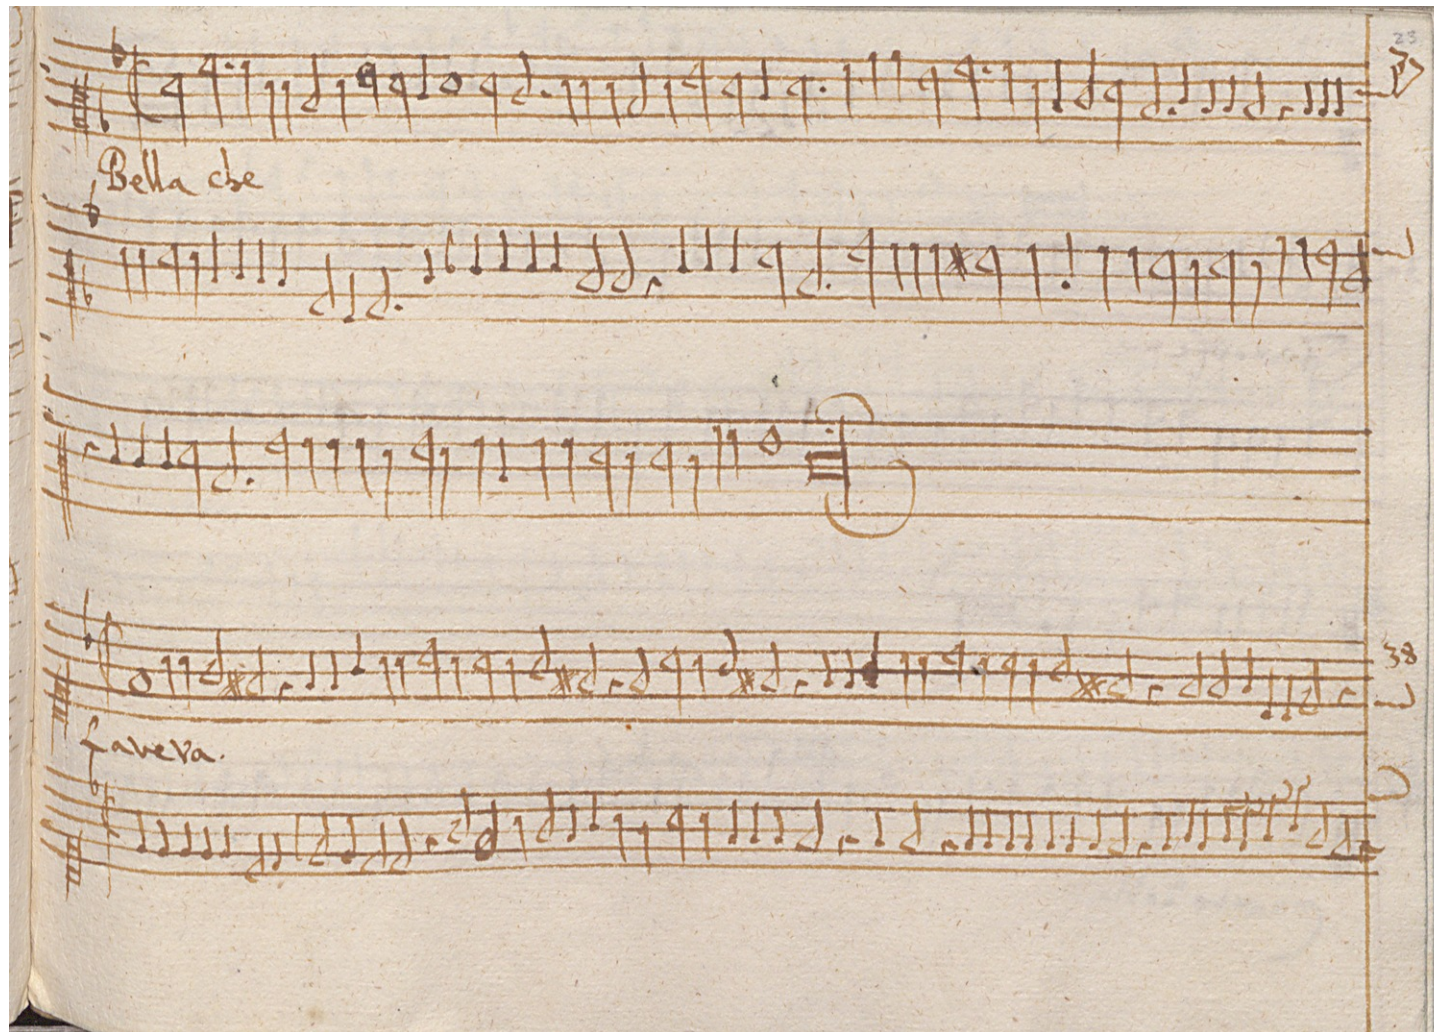 23
37
Bella che
38
faveva.